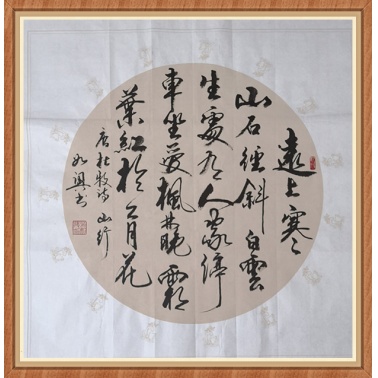 遠上寒
山石徑斜白雲
生處有人家停
車坐愛楓林晚霜
葉紅於二月花
唐杜牧诗 山行
书